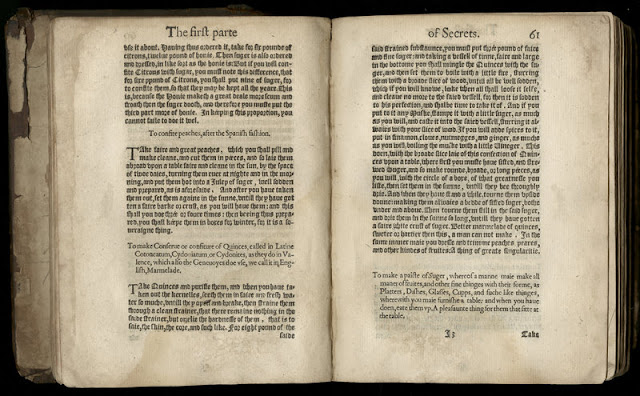 The first parte
vse it about. Hauing thus ordered it, take for six pounde of
citrons, twelue pound of honie. Then suger is also ordered
and dressed, in like sort as the honie is: But if you will con-
fite Citrons with suger, you must note this difference, that
for sixe pound of Citrons, you shall put nine of suger, for
to confite them, so that they may be kept all the yeare. This
is, because the Honie maketh a great deale more scum and
froath then the suger dooth, and therefore you must put the
third part more of honie. In keeping this proportion, you
cannot faile to doe it wel.
To confite peaches, after the Spanish fashion.
Take faire and great peaches, which you shall pill and
make cleane, and cut them in peeces, and so laie them
abroad vpon a table faire and cleane in the sun, by the space
of twoo daies, turning them euer at nighte and in the mor-
ning, and put them hot into a Juley of suger, well sodden
and prepared, as is aforesaide. And after you haue taken
them out, set them againe in the sunne, vntill they haue got-
ten a faire barke or crust, as you will haue them: and this
shall you doe three or foure times: then beeing thus prepa-
red, you shall keepe them in boxes for winter, for it is a so-
ueraigne thing.
To make Conserue or confiture of Quinces, called in Latine
Cotoneatum, Cydoniatum, or Cydonites, as they do in Va-
lence, which also the Genuoyes doe vse, we call it in Eng-
lish, Marmelade.
Take Quinces and purifie them, and when you haue ta-
ken out the kernelles, seeth them in faire and fresh wa-
ter so much, vntill they open and breake, then straine them
through a cleane strainer, that there remaine nothing in the
saide strainer, but onelie the hardnesse of them, that is to
saie, the skin, the core, and such like. For eight pound of the
saide
of Secrets. 61
said strained substaunce, you must put three pound of faire
and fine suger: and taking a vessell of stone, faire and large
in the bottome you shall mingle the Quinces with the su-
ger, and then set them to boile with a little fire, stirring
them with a broade slice of wood, vntill all be well sodden,
which if you will know, looke when all shall loose it selfe,
and cleaue no more to the saide vessell, for then it is sodden
to his perfection, and that the time to take it of. And if you
put to it any Muske, stampe it with a little suger, as much
as you will, and caste it into the saied vessell, stirring it al-
waies with your slice of wood. If you will adde spices to it,
put in sinnamon, cloues, nutmegges, and ginger, as muche
as you will, boiling the muske with a little Vineger. This
doen, with the broade slice laie of this confection of Quin-
ces vpon a table, where first you muste haue sifted, and stre-
wed suger, and so make rounde, broade, or long peeces, as
you will, with the circle of a boxe, of that greatnesse you
like, then set them in the sunne, vntill they bee throughly
drie. And when they haue stand a while, tourne them vpside
doune: making them alwaies a bedde of sifted suger, bothe
vnder and aboue. Then tourne them still in the said suger,
and drie them in the sunne so long, vntill they haue gotten
a faire white crust of suger. Better marmelade of quinces,
sweeter or harder then this, a man can not make. In the
same manner maie you dresse and trimme peaches peares,
and other kindes of fruites: A thing of greate singularitie.
To make a paiste of Suger, wherof a manne maie make all
maner of fruites, and other fine thinges with their forme, as
Platters, Dishes, Glasses, Cuppes, and suche like thinges,
wherewith you maie furnishe a table: and when you haue
doen, eate them vp. A pleasaunte thing for them that sitte at
the table.
I3 Take